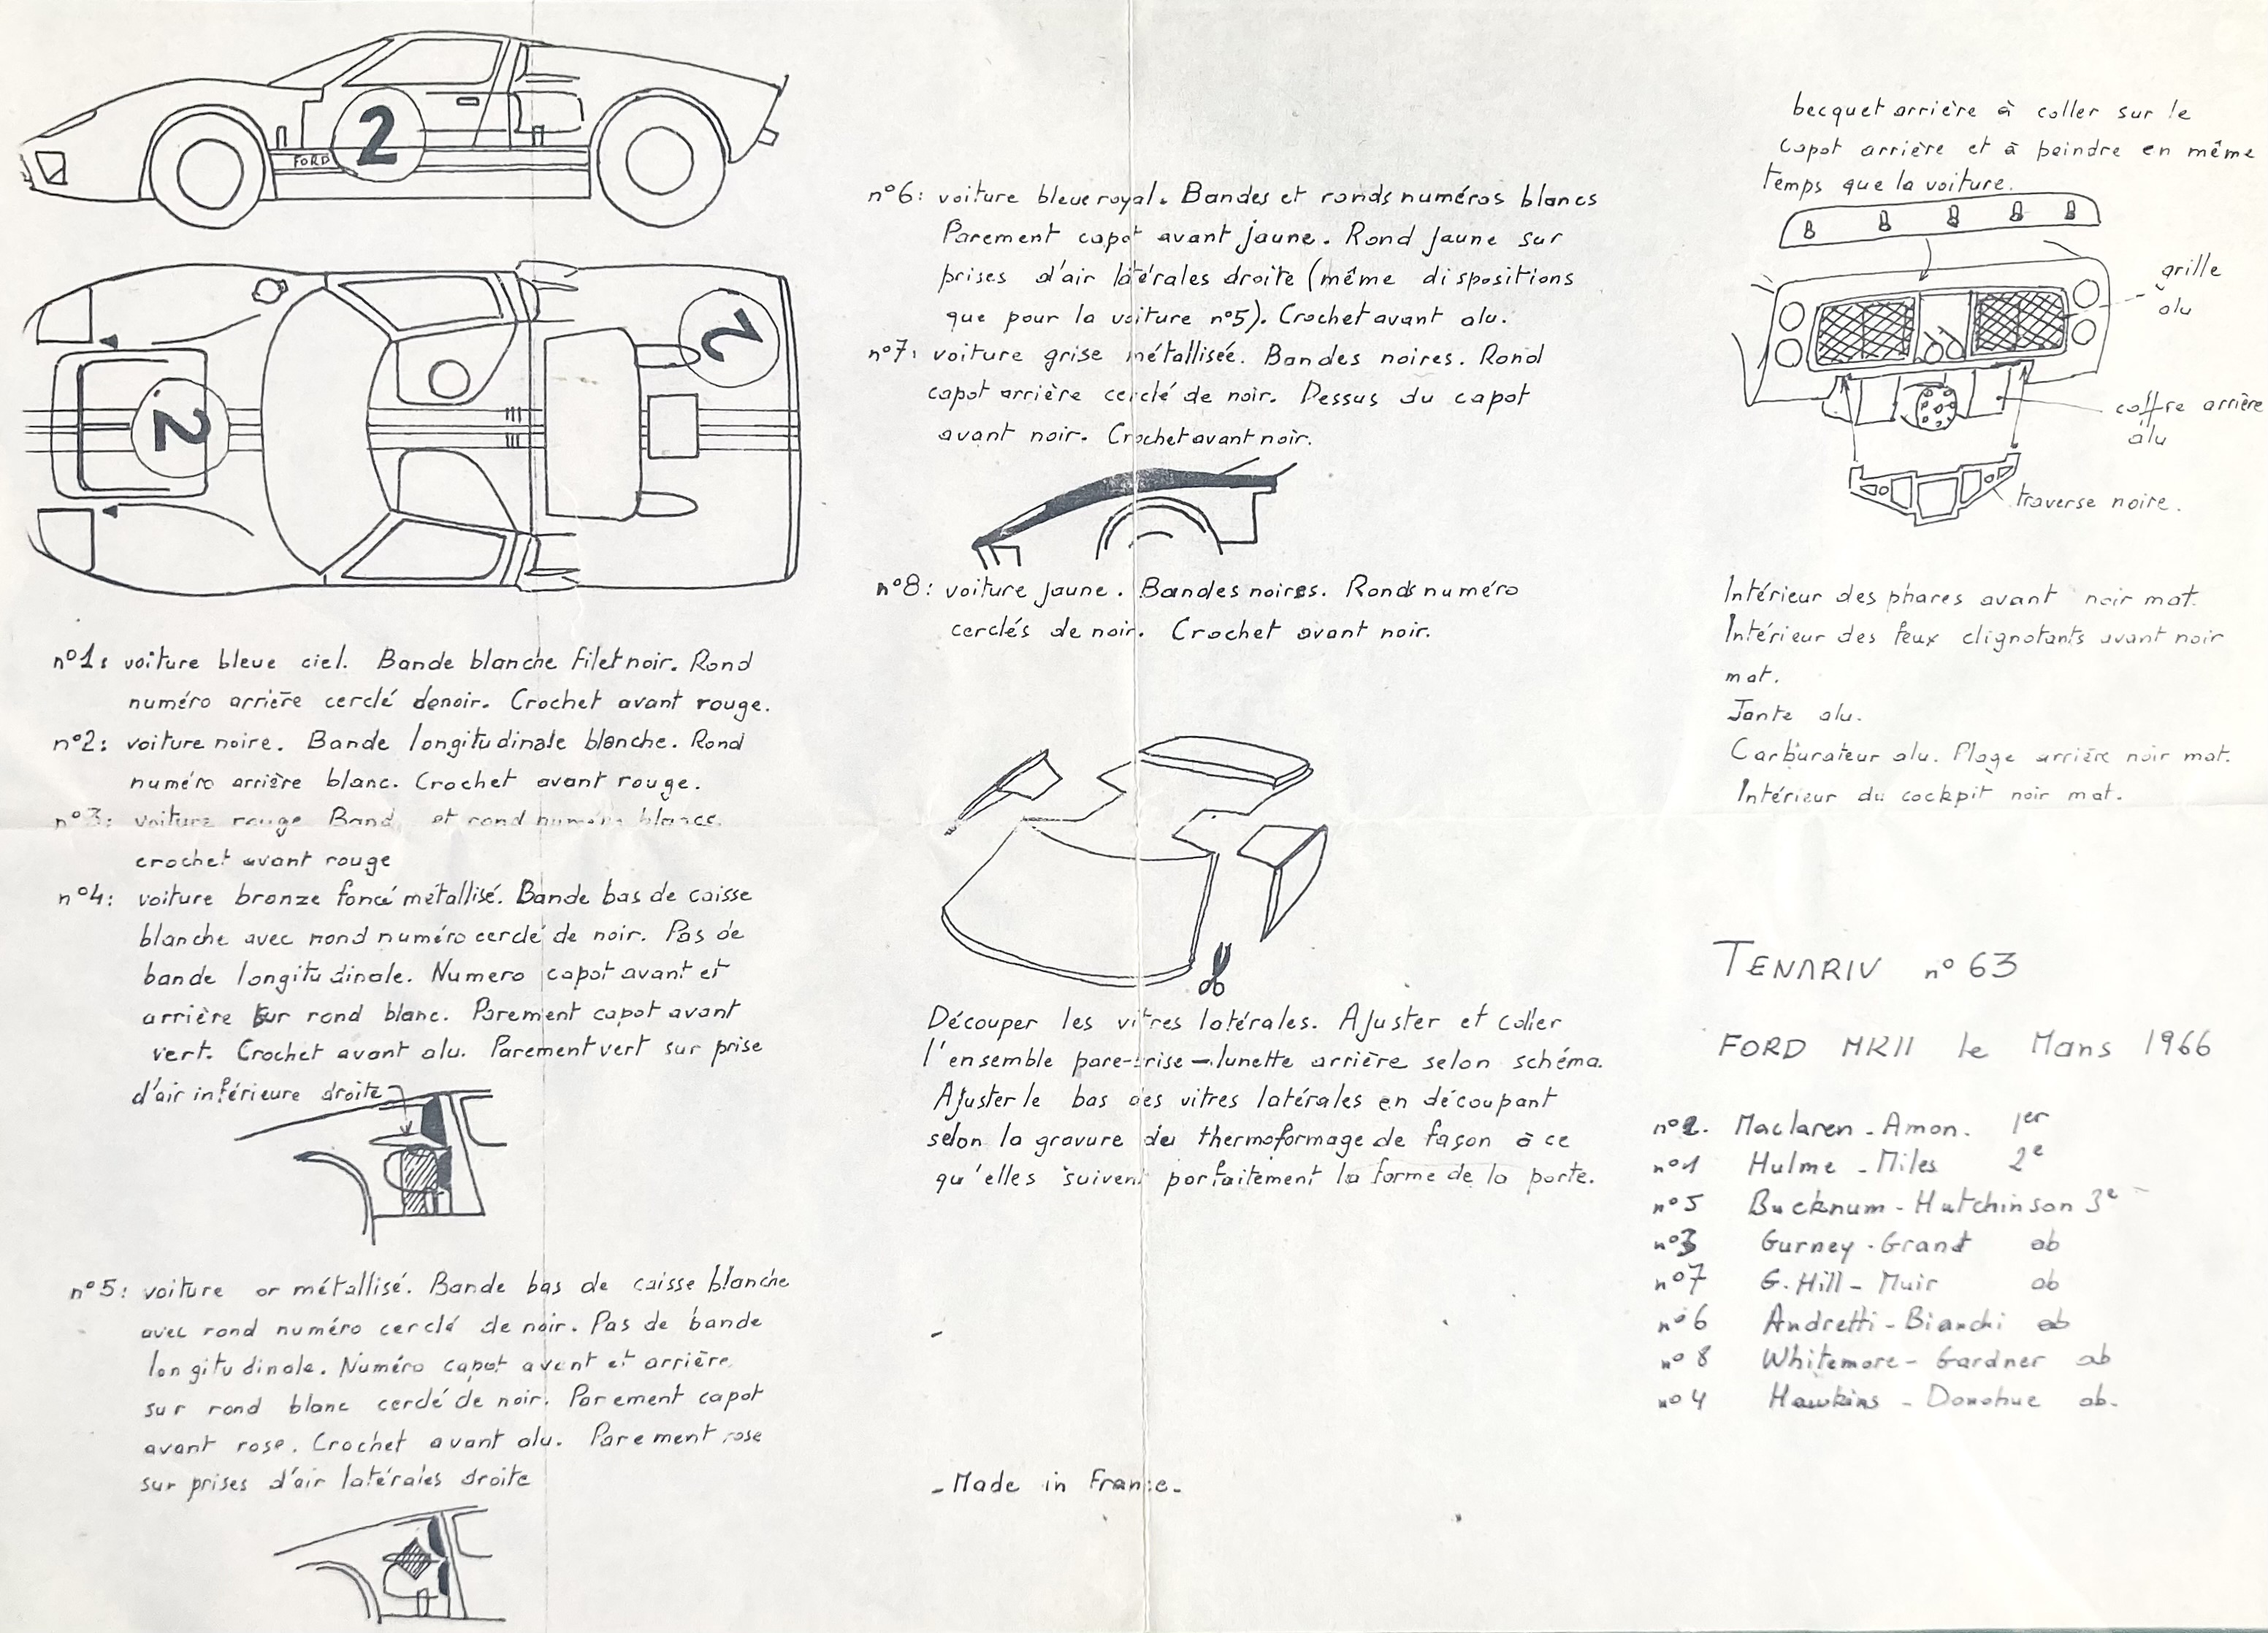 2
FORD
2
2
n°1: voiture bleue ciel. Bande blanche filet noir. Rond
numéro arrière cerclé de noir. Crochet avant rouge.
n°2: voiture noire. Bande longitudinale blanche. Rond
numéro arrière blanc. Crochet avant rouge.
n°3: voiture rouge Band et rond numéro blancs.
crochet avant rouge
n°4: voiture bronze foncé métallisé. Bande bas de caisse
blanche avec rond numéro cerclé de noir. Pas de
bande longitudinale. Numero capot avant et
arrière sur rond blanc. Parement capot avant
vert. Crochet avant alu. Parement vert sur prise
d'air inférieure droite
n°5: voiture or métallisé. Bande bas de caisse blanche
avec rond numéro cerclé de noir. Pas de bande
longitudinale. Numéro capot avant et arrière
sur rond blanc cerclé de noir. Parement capot
avant rose. Crochet avant alu. Parement rose
sur prises d'air latérales droite
n°6: voiture bleue royal. Bandes et ronds numéros blancs
Parement capot avant jaune. Rond jaune sur
prises d'air latérales droite (même dispositions
que pour la voiture n°5). Crochet avant alu.
n°7: voiture grise métallisée. Bandes noires. Rond
capot arrière cerclé de noir. Dessus du capot
avant noir. Crochet avant noir.
n°8: voiture jaune. Bandes noires. Ronds numéro
cerclés de noir. Crochet avant noir.
Découper les vitres latérales. Ajuster et coller
l'ensemble pare-brise - lunette arrière selon schéma.
Ajuster le bas des vitres latérales en découpant
selon la gravure du thermoformage de façon à ce
qu'elles suivent parfaitement la forme de la porte.
- Made in France -
becquet arrière à coller sur le
capot arrière et à peindre en même
temps que la voiture.
grille
alu
coffre arrière
alu
traverse noire.
Intérieur des phares avant noir mat.
Intérieur des feux clignotants avant noir
mat.
Jante alu.
Carburateur alu. Plage arrière noir mat.
Intérieur du cockpit noir mat.
TENARIV n° 63
FORD MKII le Mans 1966
n°2. Maclaren - Amon. 1er
n°1 Hulme - Miles 2e
n°5 Bucknum - Hutchinson 3e
n°3 Gurney - Grant ab
n°7 G. Hill - Muir ab
n°6 Andretti - Bianchi ab
n°8 Whitemore - Gardner ab
n°4 Hawkins - Donohue ab.